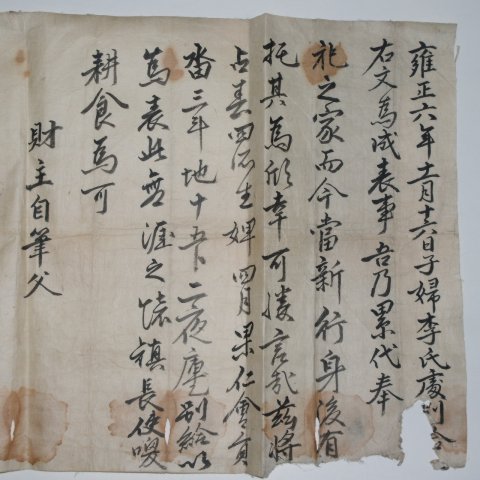 雍正六年十一月十六日子婦李氏處別給
右文爲成表事吾乃累代奉
祀之家而今當新行身後有
托其爲欣幸可勝言哉茲將
占春四所生婢四月果仁會員
畓三斗地十五卜二夜庫別給以
爲表此無涯之懷 長使喫
耕食爲可
財主自筆父